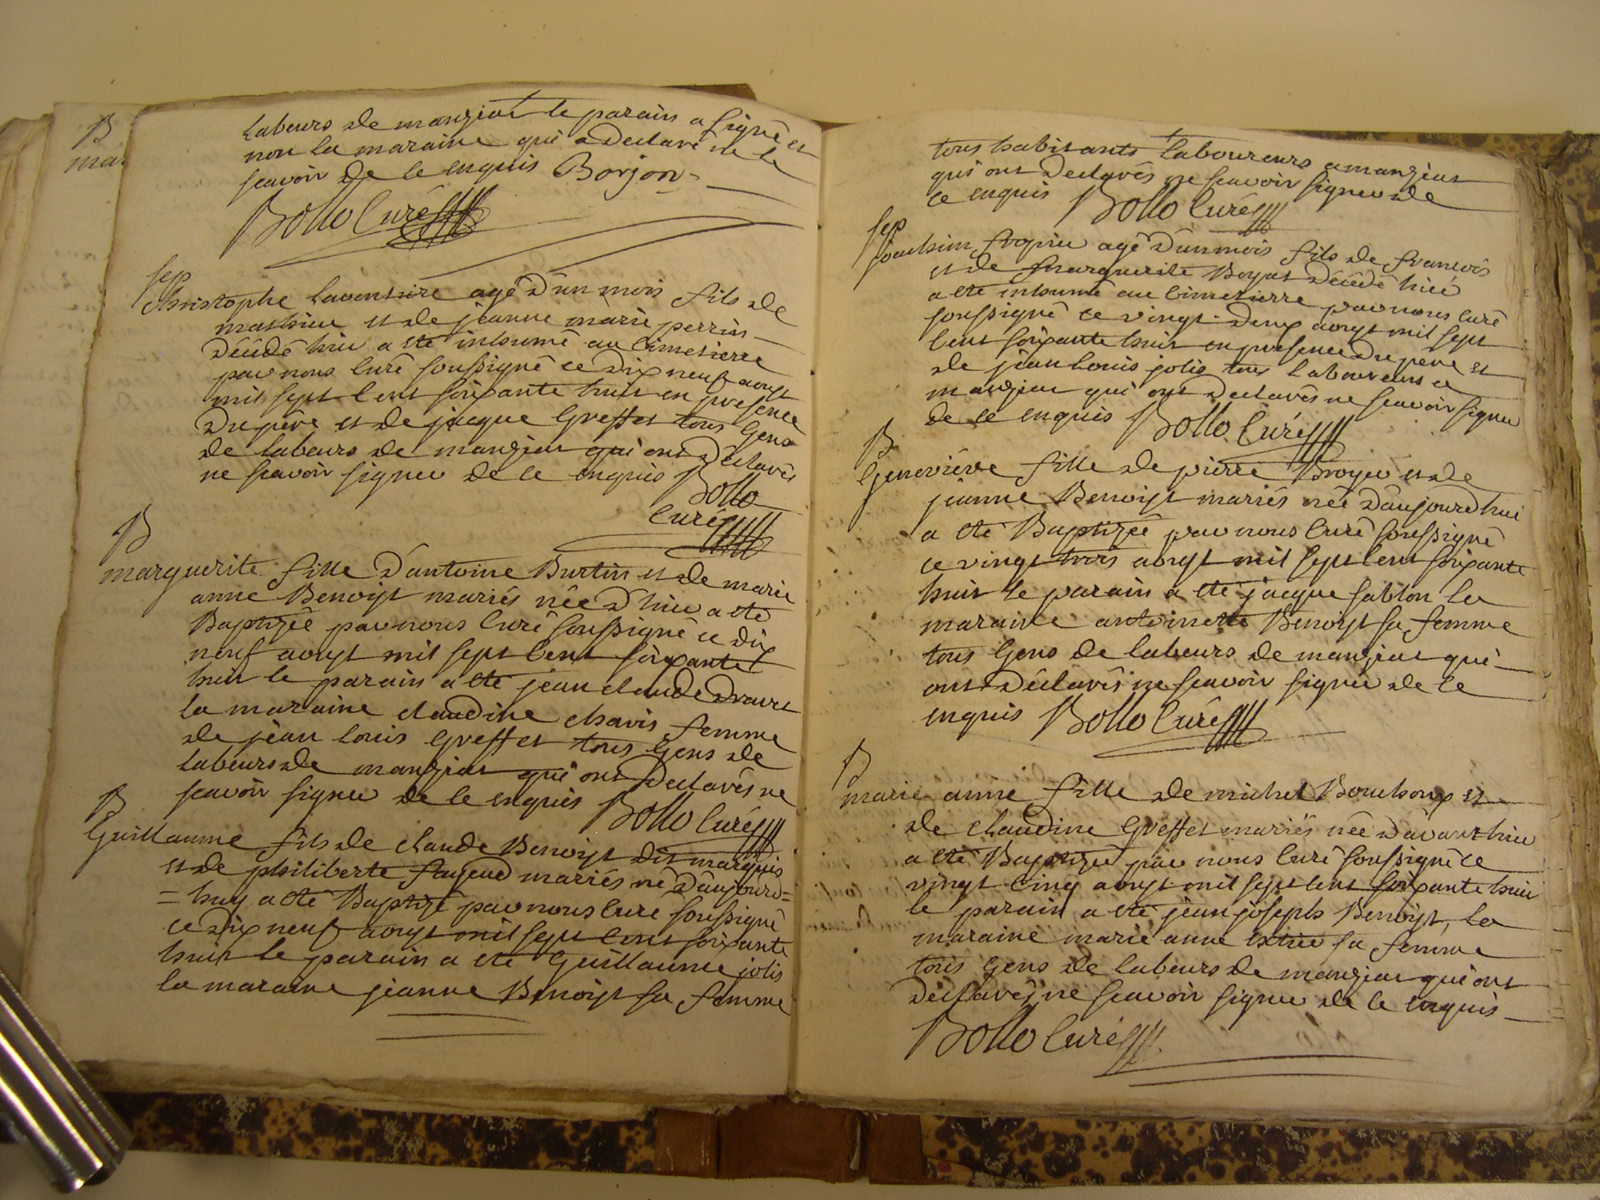 B
mar
labeurs de manziat le parain a signé et
non la maraine qui a declaré ne le
scavoir de ce enquis Borjon
Bollo Curé
sep
Christophe laventure agé d'un mois fils de
mathieu et de jeanne marie perrin
décédé hier a eté inhumé au Cimetierre
par nous Curé soussigné ce dix neuf aoust
mil sept Cent soixante huit en presence
du père et de jacque Greffet tous Gens
de labeurs de manziat qui ont declarés
ne scavoir signer de ce enquis Bollo
Curé
B
marguerite fille d'antoine Burtin et de marie
anne Benoist mariés née d'hier a eté
Baptizée par nous Curé soussigné ce dix
neuf aoust mil sept Cent soixante
huit le parain a eté jean claude
la maraine claudine chavis femme
de jean louis Greffet tous Gens de
labeurs de manziat qui ont declarés ne
scavoir signer de ce enquis Bollo Curé
B
Guillaume fils de claude Benoist dit marquis
et de philiberte mariés né d'aujourd=
=huy a eté Baptizé par nous Curé soussigné
ce dix neuf aoust mil sept Cent soixante
huit le parain a eté Guillaume jolis
la maraine jeanne Benoist sa femme
tous habitants laboureurs a manziat
qui ont declarés ne scavoir signer de
ce enquis Bollo Curé
sep
joachim agé d'un mois fils de francois
et de marguerite Boyat décédé hier
a eté inhumé au Cimetierre par nous Curé
soussigné ce vingt deux aoust mil sept
Cent soixante huit en presence du père et
de jean louis jolis tous laboureurs a
manziat qui ont declarés ne scavoir signer
de ce enquis Bollo Curé
B
Genevieve fille de pierre Broyer et de
jeanne Benoist mariés née d'aujourdhui
a eté Baptizée par nous Curé soussigné
ce vingt trois aoust mil sept Cent soixante
huit le parain a eté jacque sablon la
maraine antoinette Benoist sa femme
tous Gens de labeurs de manziat qui
ont declarés ne scavoir signer de ce
enquis Bollo Curé
B
marie anne fille de michel Bouchoux et
de claudine Greffet mariés née d'avant hier
a eté Baptizée par nous Curé soussigné ce
vingt Cinq aoust mil sept Cent soixante huit
le parain a eté jean joseph Benoist, la
maraine marie anne sa femme
tous Gens de labeurs de manziat qui ont
declarés ne scavoir signer de ce enquis
Bollo Curé